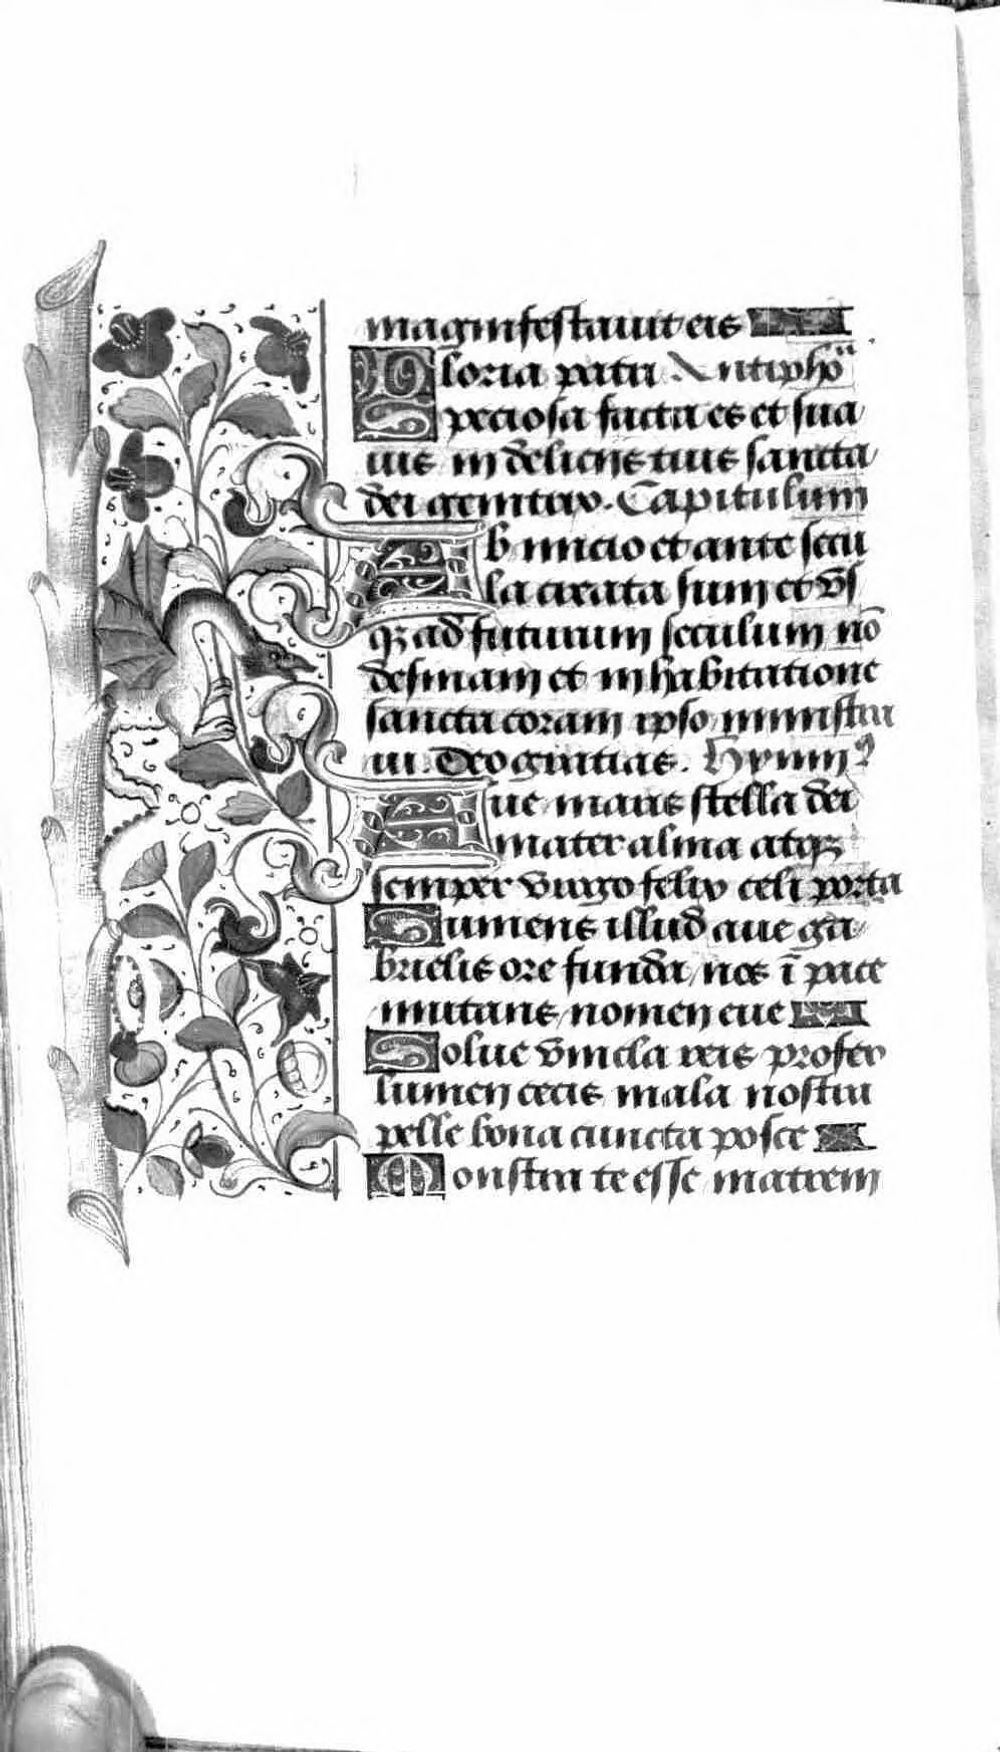 magnifestauit eis
Gloria patri Antiphoñ
Speciosa facta es et sua
uis in delicijs tuis sancta
dei genitrix. Capitulum
Ab inicio et ante secu
la creata sum et vs
qz ad futurum seculum nō
desinam et in habitatione
sancta coram ipso ministra
ui. Deo gratias. Hymnꝰ
Aue maris stella dei
mater alma atqz
semper virgo felix celi porta
Sumens illud aue ga
brielis ore funda nos ī pace
mutans nomen eue
Solue vincla reis profer
lumen cecis mala nostra
pelle bona cuncta posce
Monstra te esse matrem